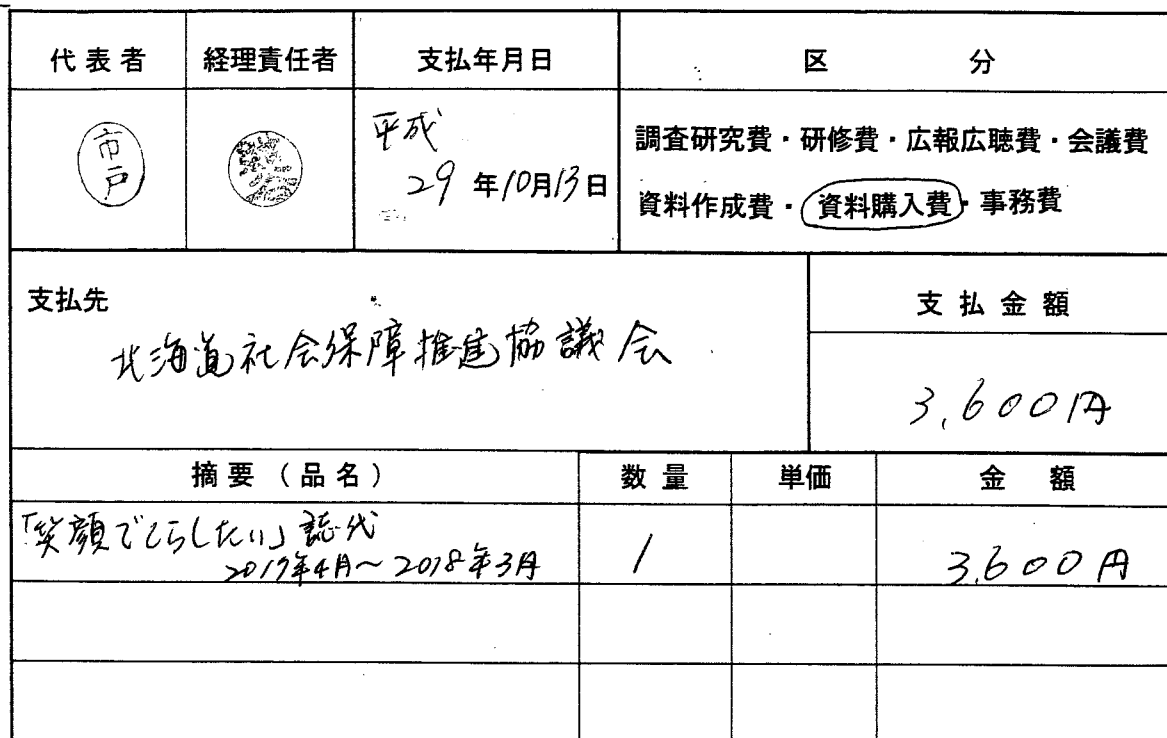 代表者 経理責任者 支払年月日 区分
市戸
平成
29年10月13日
調査研究費・研修費・広報広聴費・会議費
資料作成費・資料購入費・事務費
支払先
北海道社会保障推進協議会
支払金額
3,600円
摘要（品名） 数量 単価 金額
「笑顔でくらしたい」誌代
2017年4月～2018年3月 1 3,600円